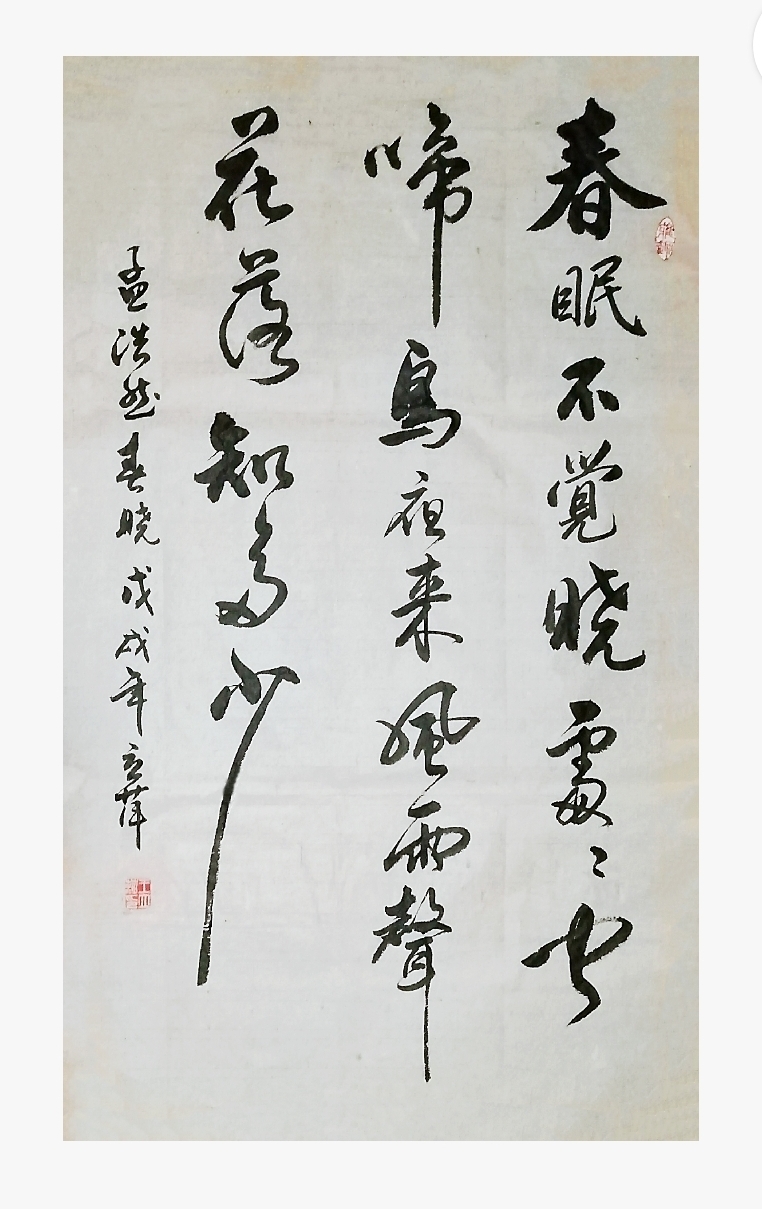 春眠不覺晓處〻聞
啼鳥夜来風雨聲
花落知多少
孟浩然春晓戊戌年